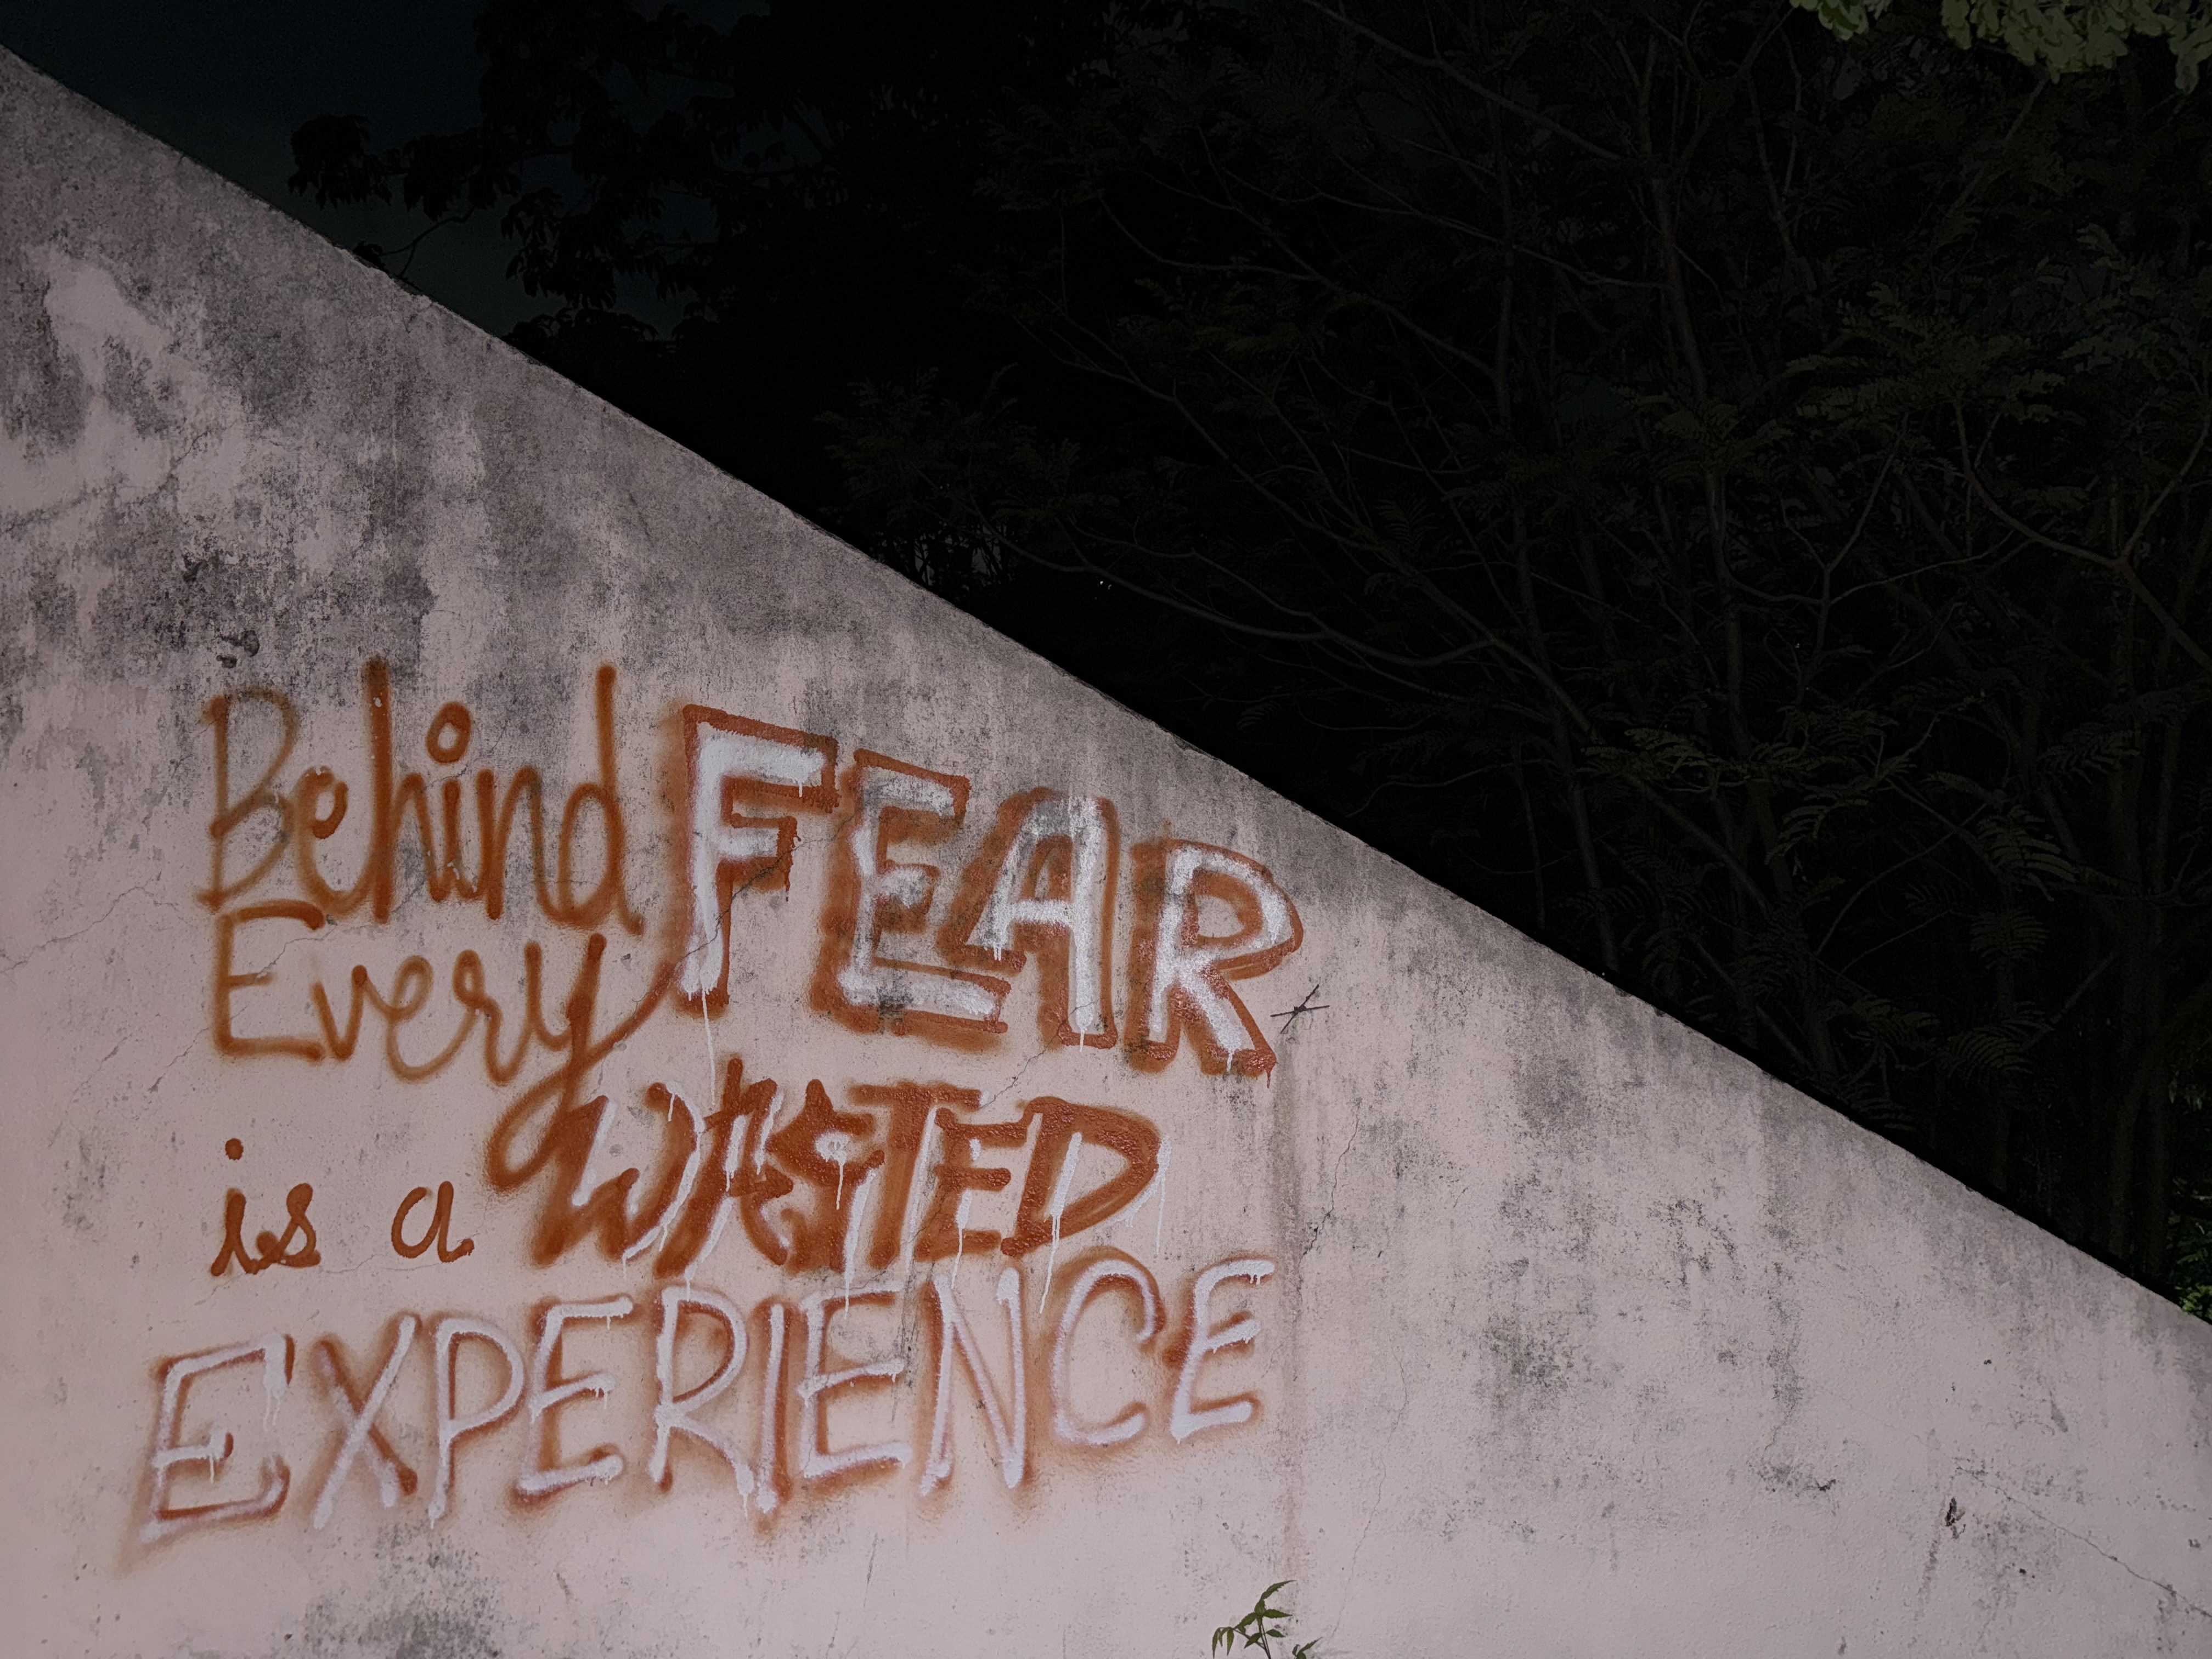 Behind
Every FEAR
is a WASTED
EXPERIENCE